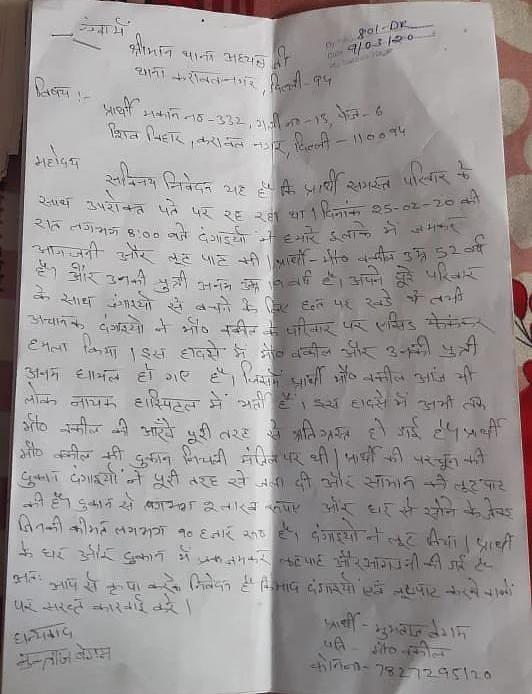 सेवा में
801-DR
9/03/20
श्रीमान थाना अध्यक्ष जी
थाना करावल नगर, दिल्ली-94
विषय :-
प्रार्थी मकान न०-332, गली न०-13, फेज-6
शिव विहार, करावल नगर, दिल्ली-110094
महोदय
सविनय निवेदन यह है कि प्रार्थी समस्त परिवार के
साथ उपरोक्त पते पर रह रहा था। दिनांक 25-02-20 को
रात लगभग 8:00 बजे दंगाइयों ने हमारे इलाके में जमकर
आगजनी और लूट पाट की। प्रार्थी- मौ० वकील उम्र 52 वर्ष
है। और उनकी पुत्री अनम उम्र 19 वर्ष है। अपने पूरे परिवार
के साथ दंगाइयों से बचने के लिए छत पर खडे थे तभी
अचानक दंगाइयों ने मौ० वकील के परिवार पर एसिड फेंककर
हमला किया। इस हादसे में मौ० वकील और उनकी पुत्री
अनम घायल हो गए है। जिसमें प्रार्थी मौ० वकील आज भी
लोक नायक हास्पिटल में भर्ती है। इस हादसे में अभी तक
मौ० वकील की आँखे पूरी तरह से क्षतिग्रस्त हो गई है। प्रार्थी
मौ० वकील की दुकान निचली मंजिल पर थी। प्रार्थी की परचून की
दुकान दंगाइयों ने पूरी तरह से जला दी और सामान की लूटपाट
की है। दुकान से लगभग 2 लाख रूपए और घर से सोने के जेवर
जिनकी कीमत लगभग 90 हजार रू० है। दंगाइयों ने लूट लिया। प्रार्थी
के घर और दुकान में जमकर लूटपाट और आगजनी की गई है।
अतः आप से कृपा करके निवेदन है कि आप दंगाइयों एवं लूटपाट करने वालो
पर सख्त कारवाई करें।
धन्यवाद
मुमताज बेगम
प्रार्थी- मुमताज बेगम
पति - मौ० वकील
फोन न०- 7827295120